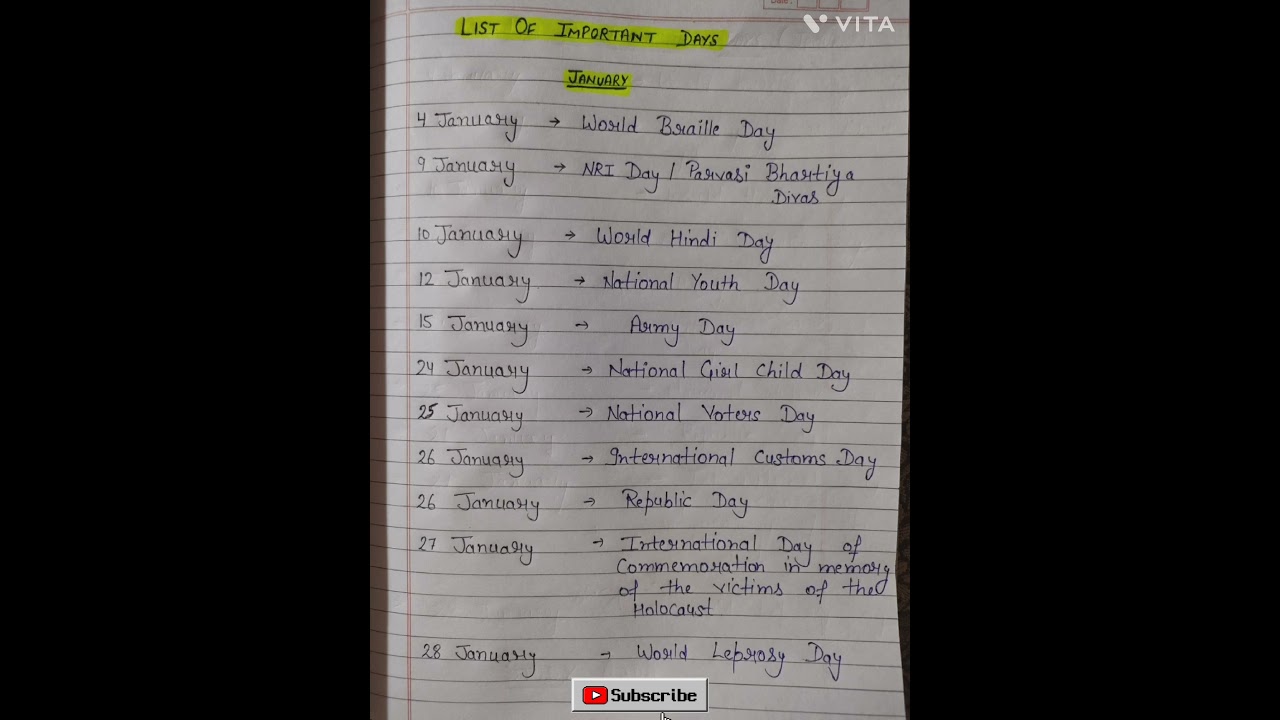 Date:
VITA
LIST OF IMPORTANT DAYS
JANUARY
4 January → World Braille Day
9 January → NRI Day / Parvasi Bhartiya
Divas
10 January → World Hindi Day
12 January → National Youth Day
15 January → Army Day
24 January → National Girl Child Day
25 January → National Voters Day
26 January → International Customs Day
26 January → Republic Day
27 January → International Day of
Commemoration in memory
of the victims of the
Holocaust
28 January → World Leprosy Day
Subscribe